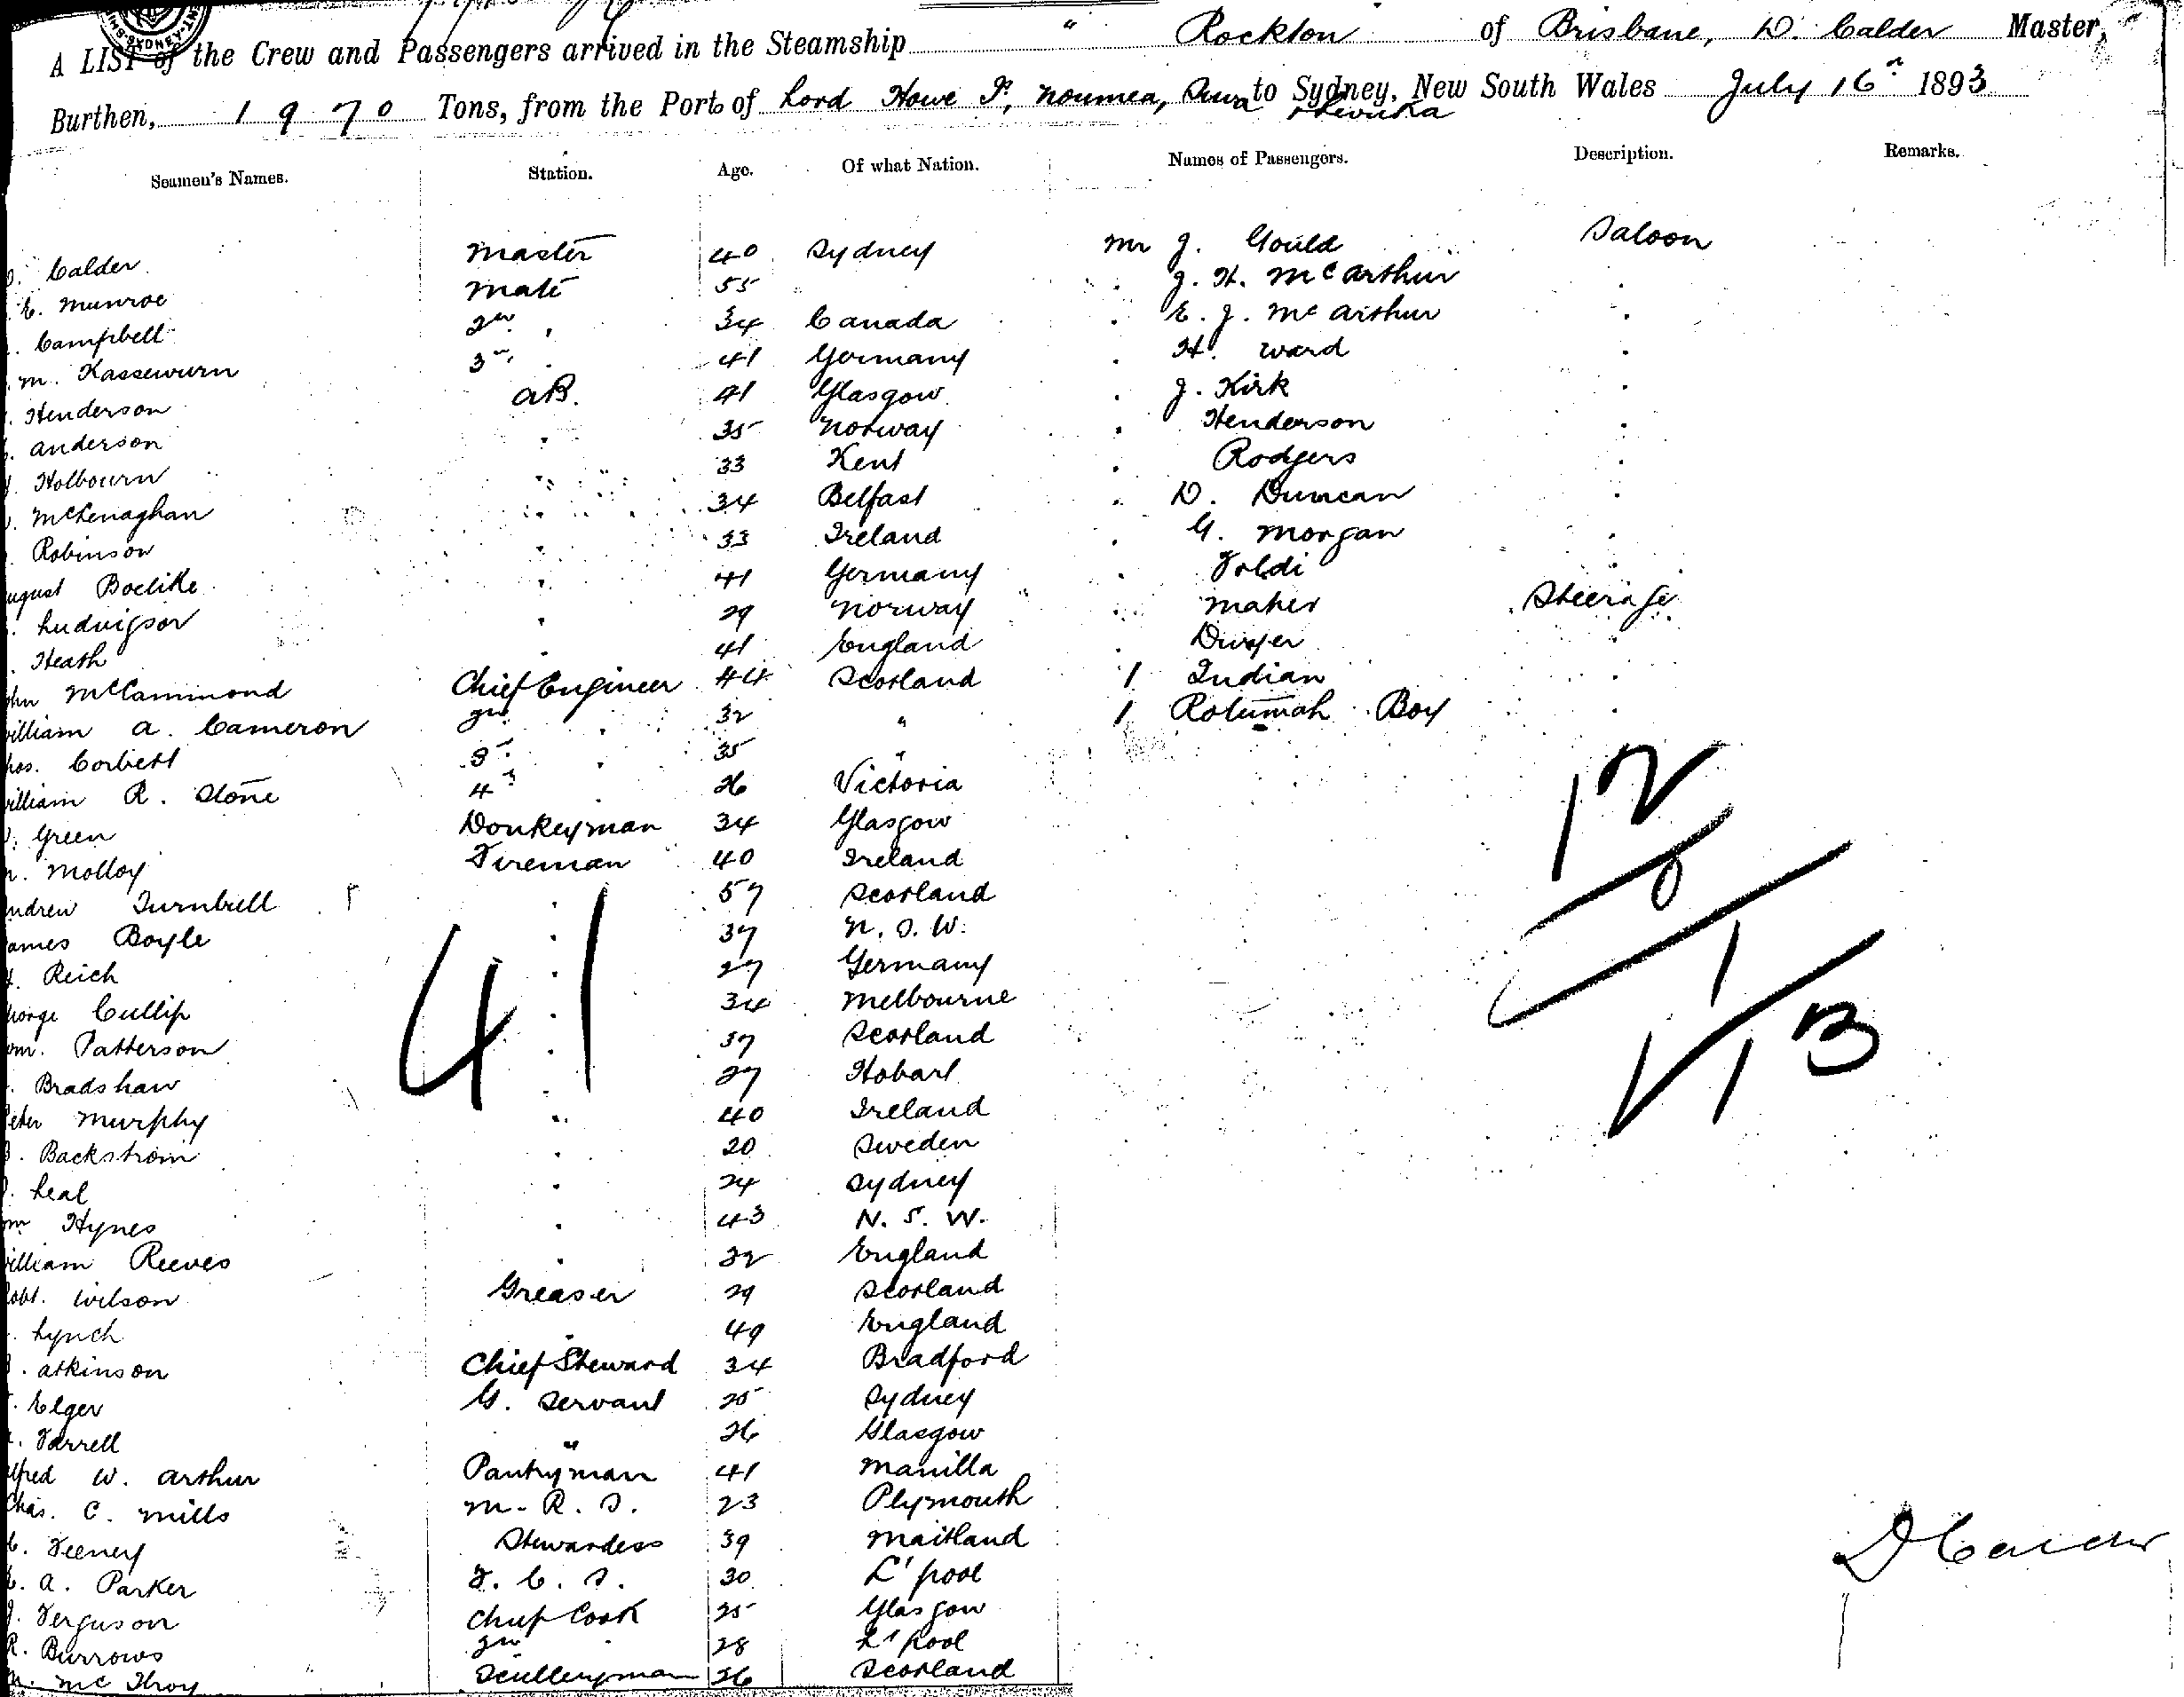 A LIST of the Crew and Passengers arrived in the Steamship " Rockton " of Brisbane, D. Calder Master,
Burthen, 1970 Tons, from the Port of Lord Howe I., Noumea, Suva & Levuka to Sydney, New South Wales July 16th 1893
Seamen's Names. Station. Age. Of what Nation. Names of Passengers. Description. Remarks.
Calder Master 40 Sydney Mr J. Gould Saloon
E. Munroe Mate 55 " J. H. McArthur "
Campbell 2nd " 34 Canada E. J. McArthur "
M. Kassewurn 3rd " 41 Germany H. Ward "
Henderson AB. 41 Glasgow J. Kirk "
Anderson " 35 Norway Henderson "
Holbourn " 33 Kent Rodgers "
McLenaghan " 34 Belfast D. Duncan "
Robinson " 33 Ireland G. Morgan "
ugust Boelike " 41 Germany Toldi "
Ludvigson " 29 Norway Maher Steerage
Heath " 41 England Dwyer "
ohn McCammond Chief Engineer 44 Scotland 1 Indian "
illiam A. Cameron 2nd " 32 " 1 Rotumah Boy "
hos. Corbett 3rd " 35 "
illiam R. Stone 4th 26 Victoria
Green Donkeyman 34 Glasgow
Molloy Fireman 40 Ireland
ndrew Turnbull " 57 Scotland
ames Boyle " 37 N. S. W.
Reich " 27 Germany
eorge Cullip " 34 Melbourne
Wm. Patterson " 37 Scotland
Bradshaw " 27 Hobart
eter Murphy " 40 Ireland
Backstrom " 20 Sweden
Leal " 24 Sydney
Wm Hynes " 43 N. S. W.
illiam Reeves " 32 England
obt. Wilson Greaser 29 Scotland
Lynch " 49 England
Atkinson Chief Steward 34 Bradford
Elger G. Servant 25 Sydney
Farrell " 26 Glasgow
lfred W. Arthur Pantryman 41 Manilla
Chas. C. Mills M. R. S. 23 Plymouth
Feeney Stewardess 39 Maitland
A. Parker F. C. S. 30 L'pool
J. Ferguson Chief Cook 25 Glasgow
R. Burrows 2nd " 28 L'pool
McIlroy Sculleryman 26 Scotland
41
12
0
1
1
13
D Calder